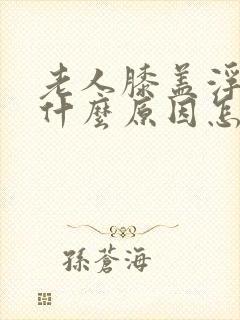 老人膝盖浮
什麼原因怎
孫蒼海